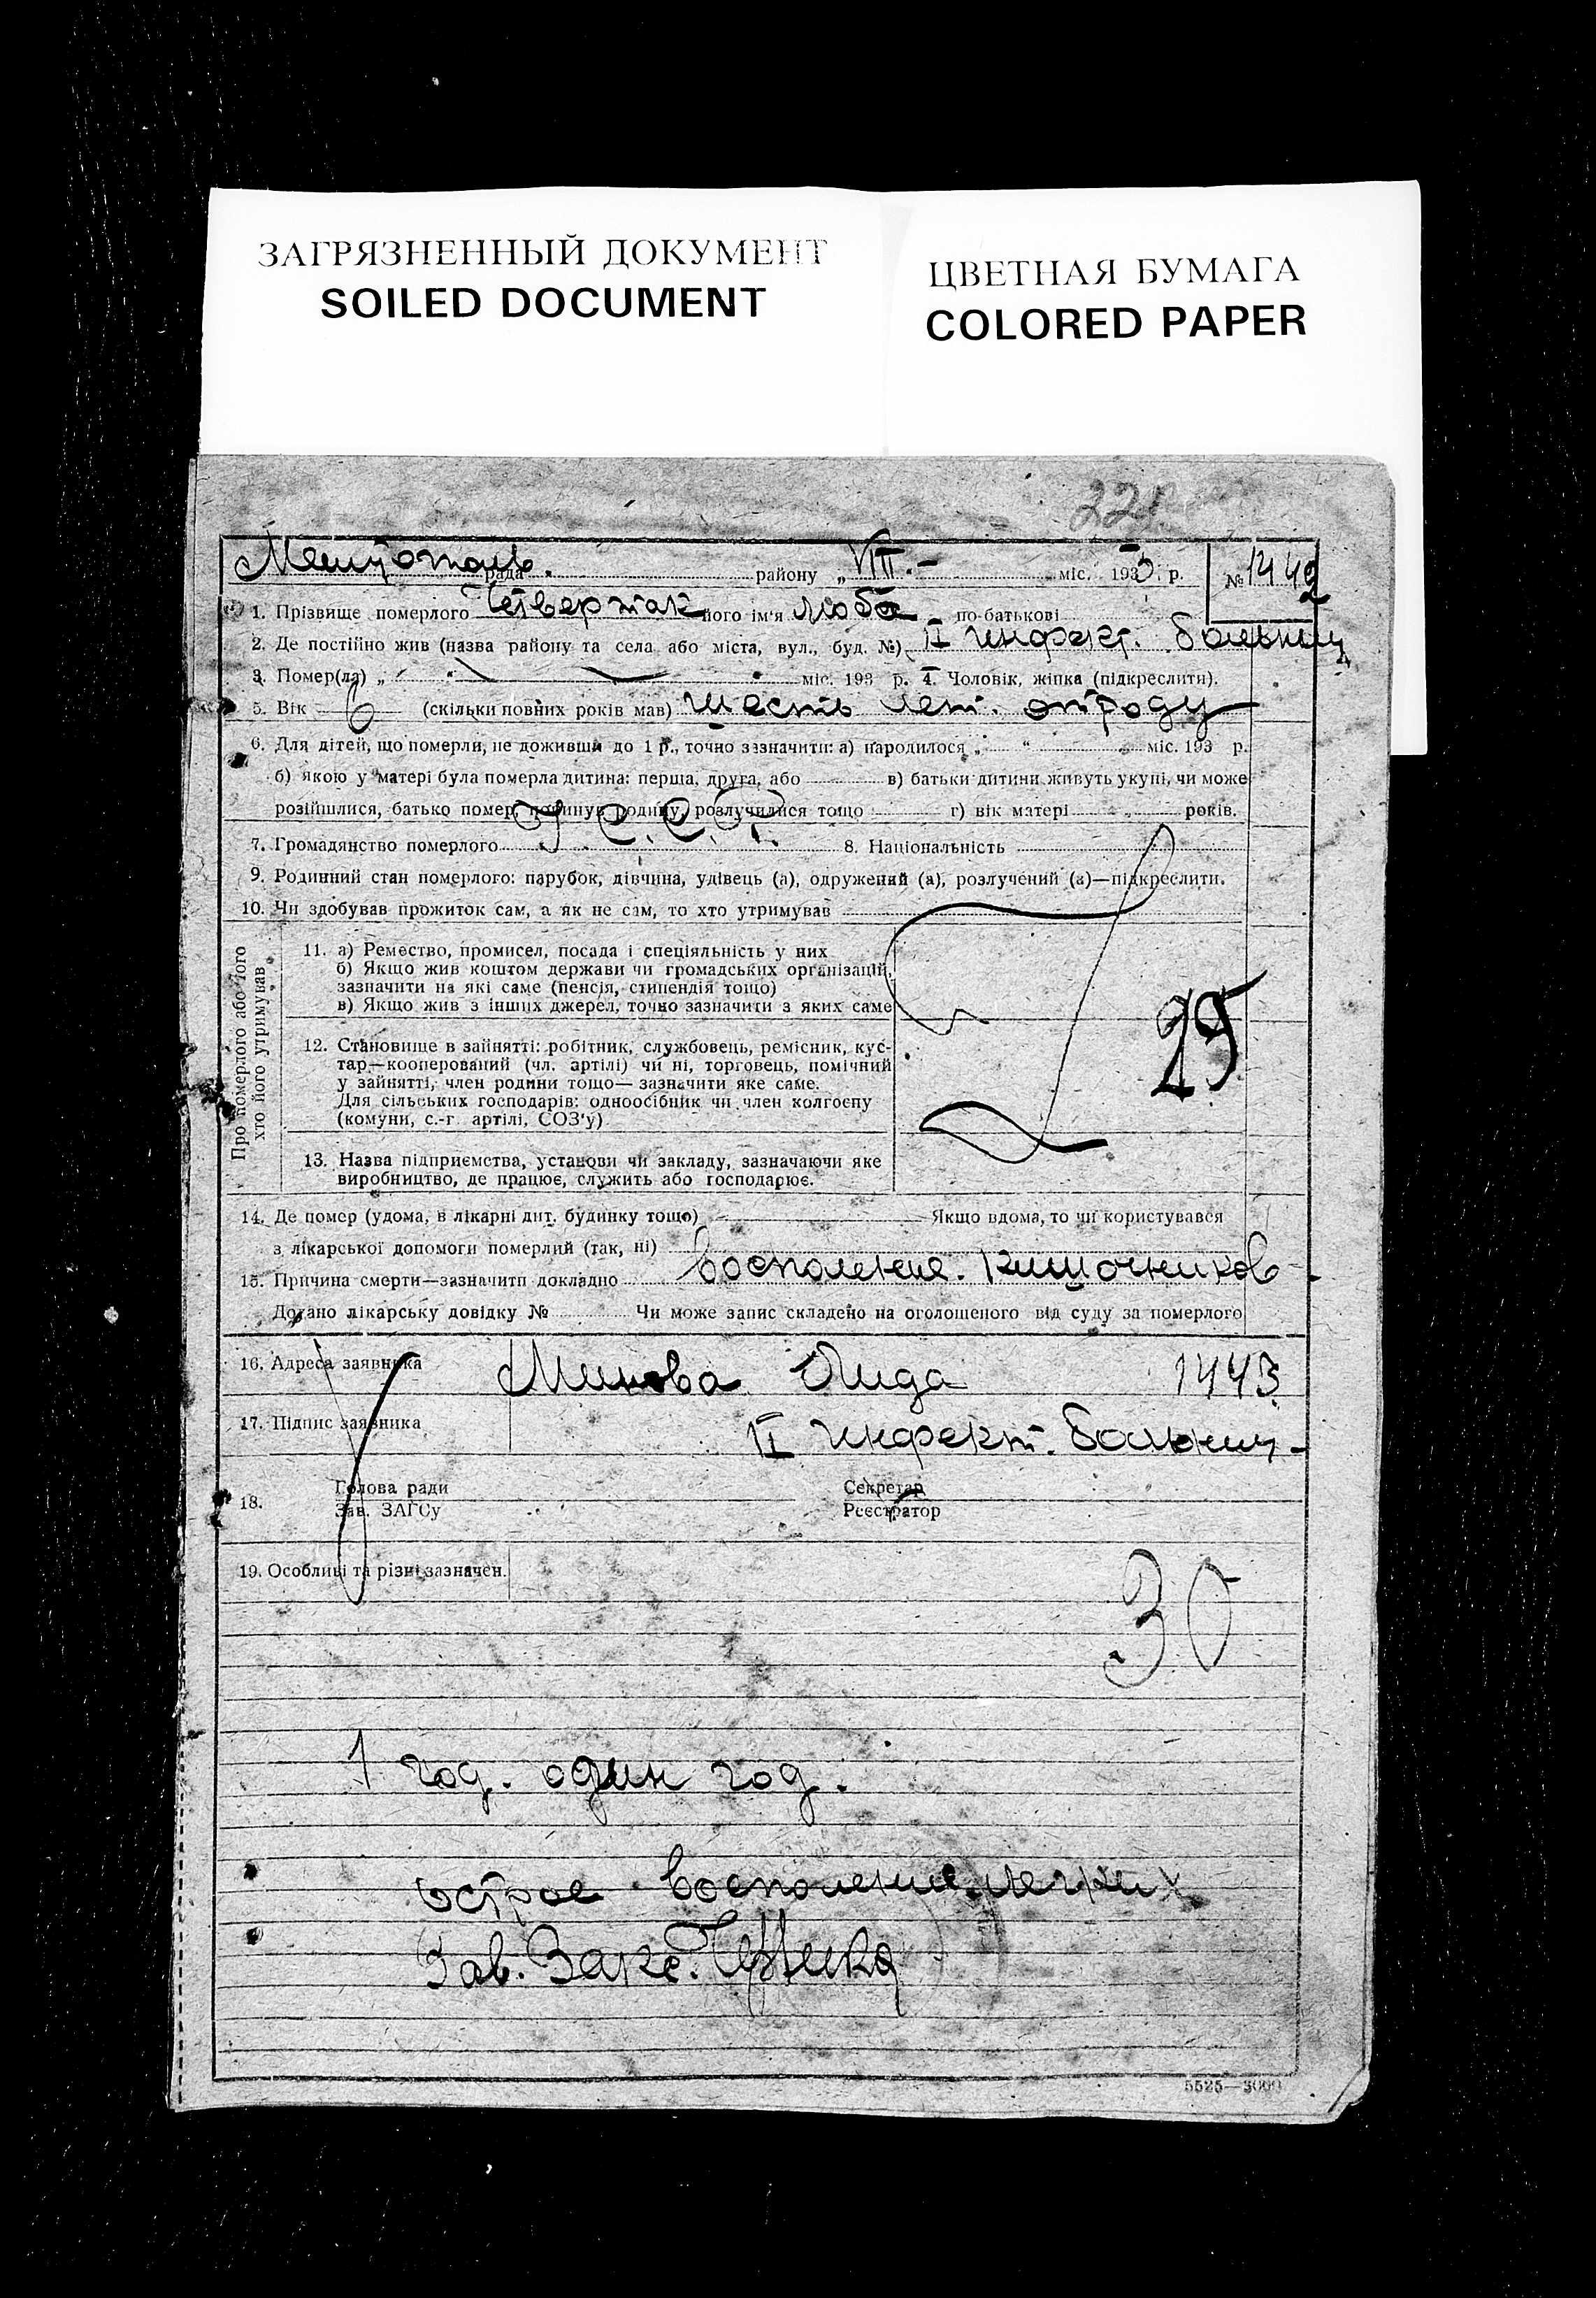 ЗАГРЯЗНЕННЫЙ ДОКУМЕНТ
SOILED DOCUMENT
ЦВЕТНАЯ БУМАГА
COLORED PAPER
221
рада району „ VIII.- міс. 1933. р. № 1442
1. Прізвище померлого Четвертак його ім'я Люба по-батькові
2. Де постійно жив (назва району та села або міста, вул., буд. №) II инфект. больниц
3. Помер(ла) „ “ міс. 193 р. 4. Чоловік, жінка (підкреслити).
5. Вік 6 (скільки повних років мав) шесть лет. отроду
6. Для дітей, що померли, не доживши до 1 р., точно зазначити: а) народилося „ “ міс. 193 р.
б) якою у матері була померла дитина: перша, друга, або в) батьки дитини живуть укупі, чи може
розійшлися, батько помер, покинув родину, розлучилися тощо г) вік матері років.
7. Громадянство померлого У.С.С.Р. 8. Національність
9. Родинний стан померлого: парубок, дівчина, удівець (а), одружений (а), розлучений (а)—підкреслити.
10. Чи здобував прожиток сам, а як не сам, то хто утримував
Про померлого або того
хто його утримував
11. а) Ремество, промисел, посада і спеціяльність у них
б) Якщо жив коштом держави чи громадських організацій,
зазначити на які саме (пенсія, стипендія тощо)
в) Якщо жив з інших джерел, точно зазначити з яких саме
25
12. Становище в зайнятті: робітник, службовець, ремісник, кус-
тар—кооперований (чл. артілі) чи ні, торговець, помічний
у зайнятті, член родини тощо— зазначити яке саме.
Для сільських господарів: одноосібник чи член колгоспу
(комуни, с.-г артілі, СОЗ'у)
13. Назва підприємства, установи чи закладу, зазначаючи яке
виробництво, де працює, служить або господарює.
14. Де помер (удома, в лікарні дит. будинку тощо) Якщо вдома, то чи користувався
з лікарської допомоги померлий (так, ні)
15. Причина смерти—зазначити докладно воспаление. кишочников
Додано лікарську довідку № Чи може запис складено на оголошеного від суду за померлого
16. Адреса заявника Минова Лида 1443
17. Підпис заявника II инфект. больниц-
18. Голова ради Секретар
Зав. ЗАГСу Реєстратор
19. Особливі та різні зазначен.
30
1 год. один год.
острое воспаление. легких
Зав. Загс.
5525—3000